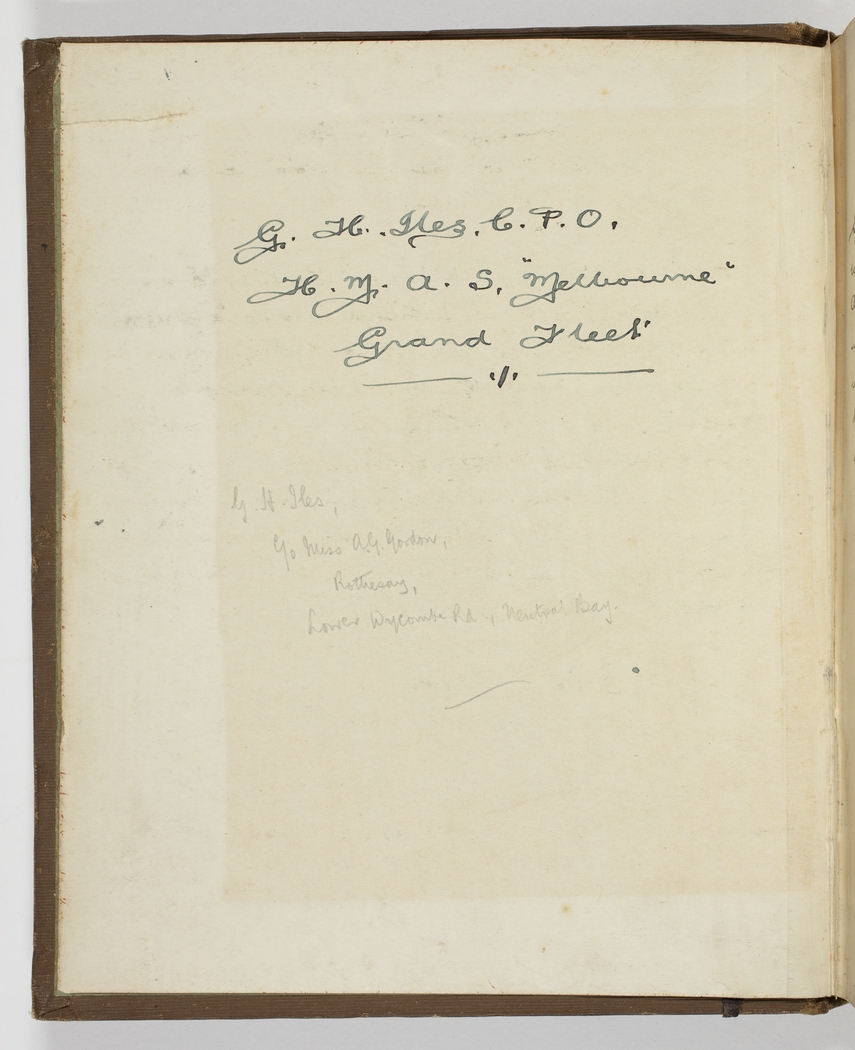 G. H. Iles. C. P. O.
H. M. A. S. "Melbourne"
Grand Fleet
G. H. Iles,
c/o Miss A. G. Gordon,
Rothesay,
Lower Wycombe Rd, Neutral Bay.